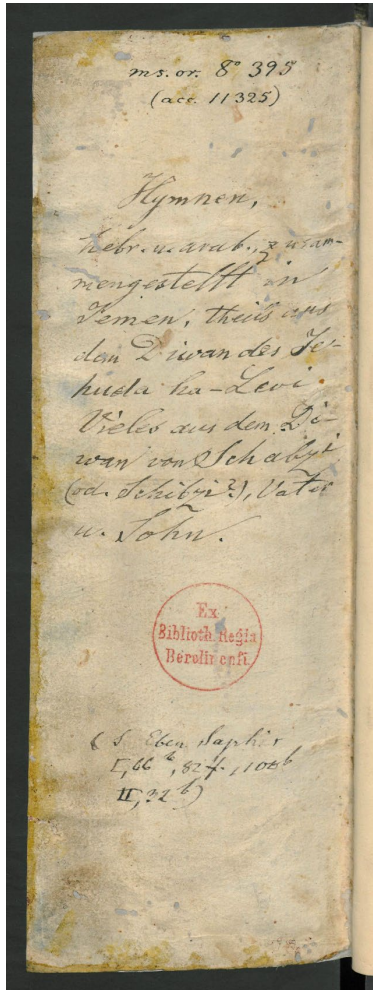 ms. or. 8° 395
(acc. 11325)
Hymnen,
hebr. u. arab., zusam-
mengestellt in
Jemen, theils aus
dem Diwan des Je-
huda ha-Levi.
Vieles aus dem Di-
wan von Schabzi
(od. Schibzi?), Vater
u. Sohn.
Ex
Biblioth. Regia
Berolinensi.
(S. Eben Saphir
I, 66 b, 82 f., 106 b
II, 32 b)